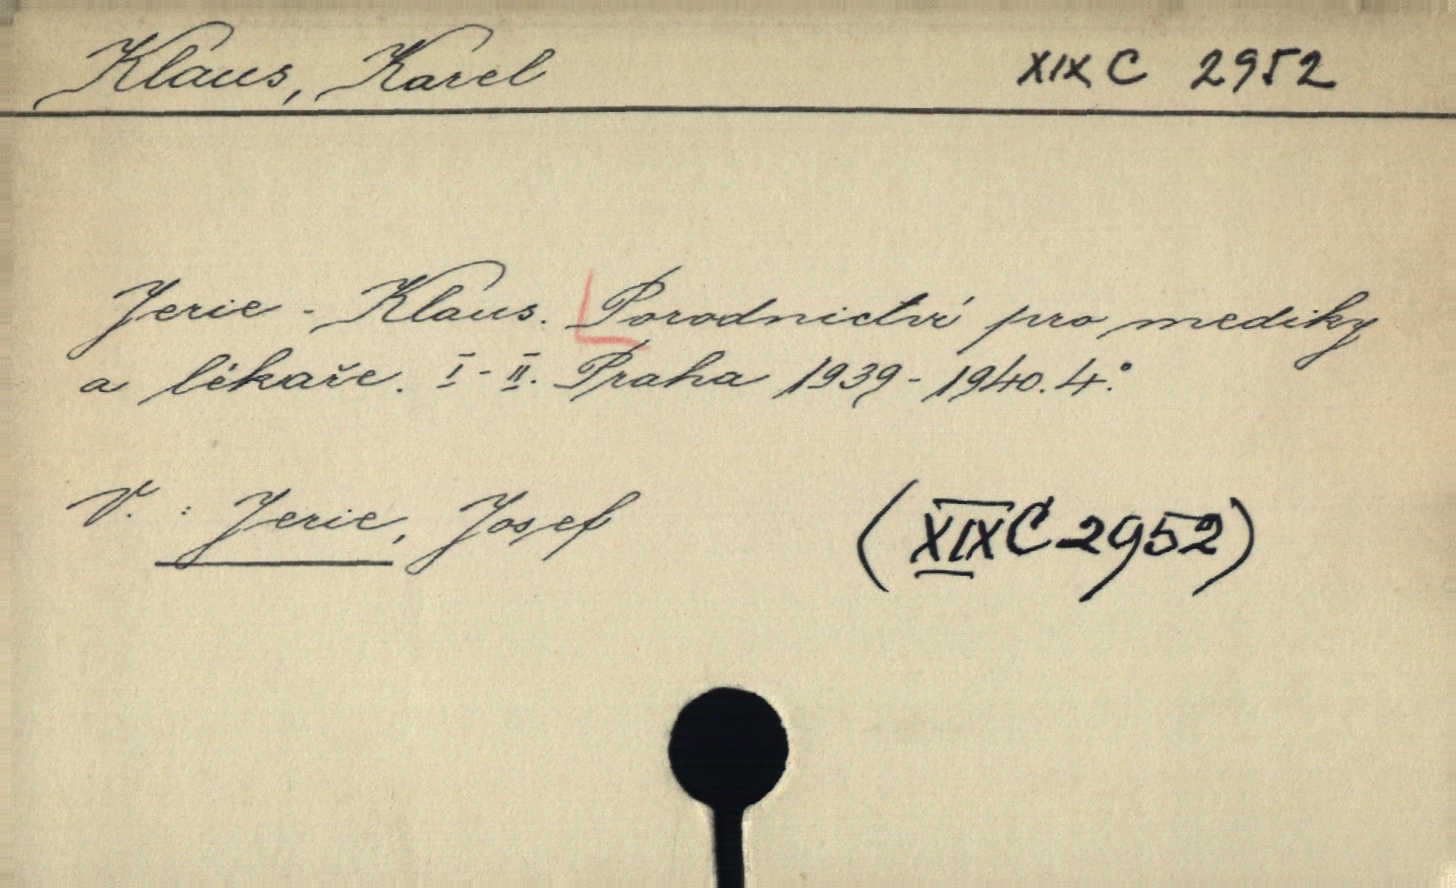 Klaus, Karel XIX C 2952
Jerie - Klaus. Porodnictví pro mediky
a lékaře. I - II. Praha 1939 - 1940. 4.°
V. : Jerie, Josef (XIX C 2952)